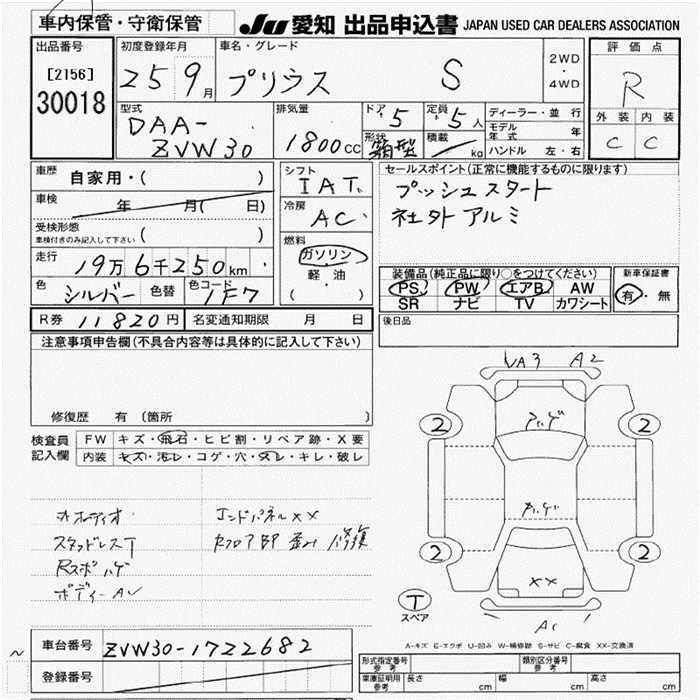 車内保管・守衛保管
JU 愛知 出品申込書 JAPAN USED CAR DEALERS ASSOCIATION
出品番号 初度登録年月 車名・グレード 2WD・4WD 評価点
[2156] 30018 25 9月 プリウス S R
型式 排気量 ドア 5 定員 5人 ディーラー・並行 外装 内装
DAA-ZVW30 1800cc 形状 箱型 積載 kg モデル年式 年 C C
ハンドル 左・右
車歴 自家用・( ) シフト IAT セールスポイント(正常に機能するものに限ります)
車検 年 月( 日) 冷房 AC プッシュスタート
受検形態 ( ) 社外アルミ
車検付きのみ記入して下さい
走行 19万6千250km 燃料 ガソリン 軽油 ( )
色 シルバー 色替 色コード 1F7
装備品(純正品に限り○をつけてください) 新車保証書
PS PW エアB AW 有・無
SR ナビ TV カワシート
R券 11820円 名変通知期限 月 日 後日品
注意事項申告欄(不具合内容等は具体的に記入して下さい)
修復歴 有 〔箇所 〕
検査員記入欄 FW キズ・飛石・ヒビ割・リペア跡・X要
内装 キズ・汚レ・コゲ・穴・スレ・キレ・破レ
オーディオ エンドパネルXX
スタッドレスT Rフロア部 歪み 修復
Rスポハゲ
ボディーAU
VA3 A2
ハゲ
ハゲ
XX
2 2
2 2
T スペア
A-キズ E-エクボ U-凹み W-補修跡 S-サビ C-腐食 XX-交換済
車台番号 ZVW30-1722682
登録番号
型式指定番号 参考 類別区分番号 参考
車庫証明用 参考 長さ cm 幅 cm 高さ cm